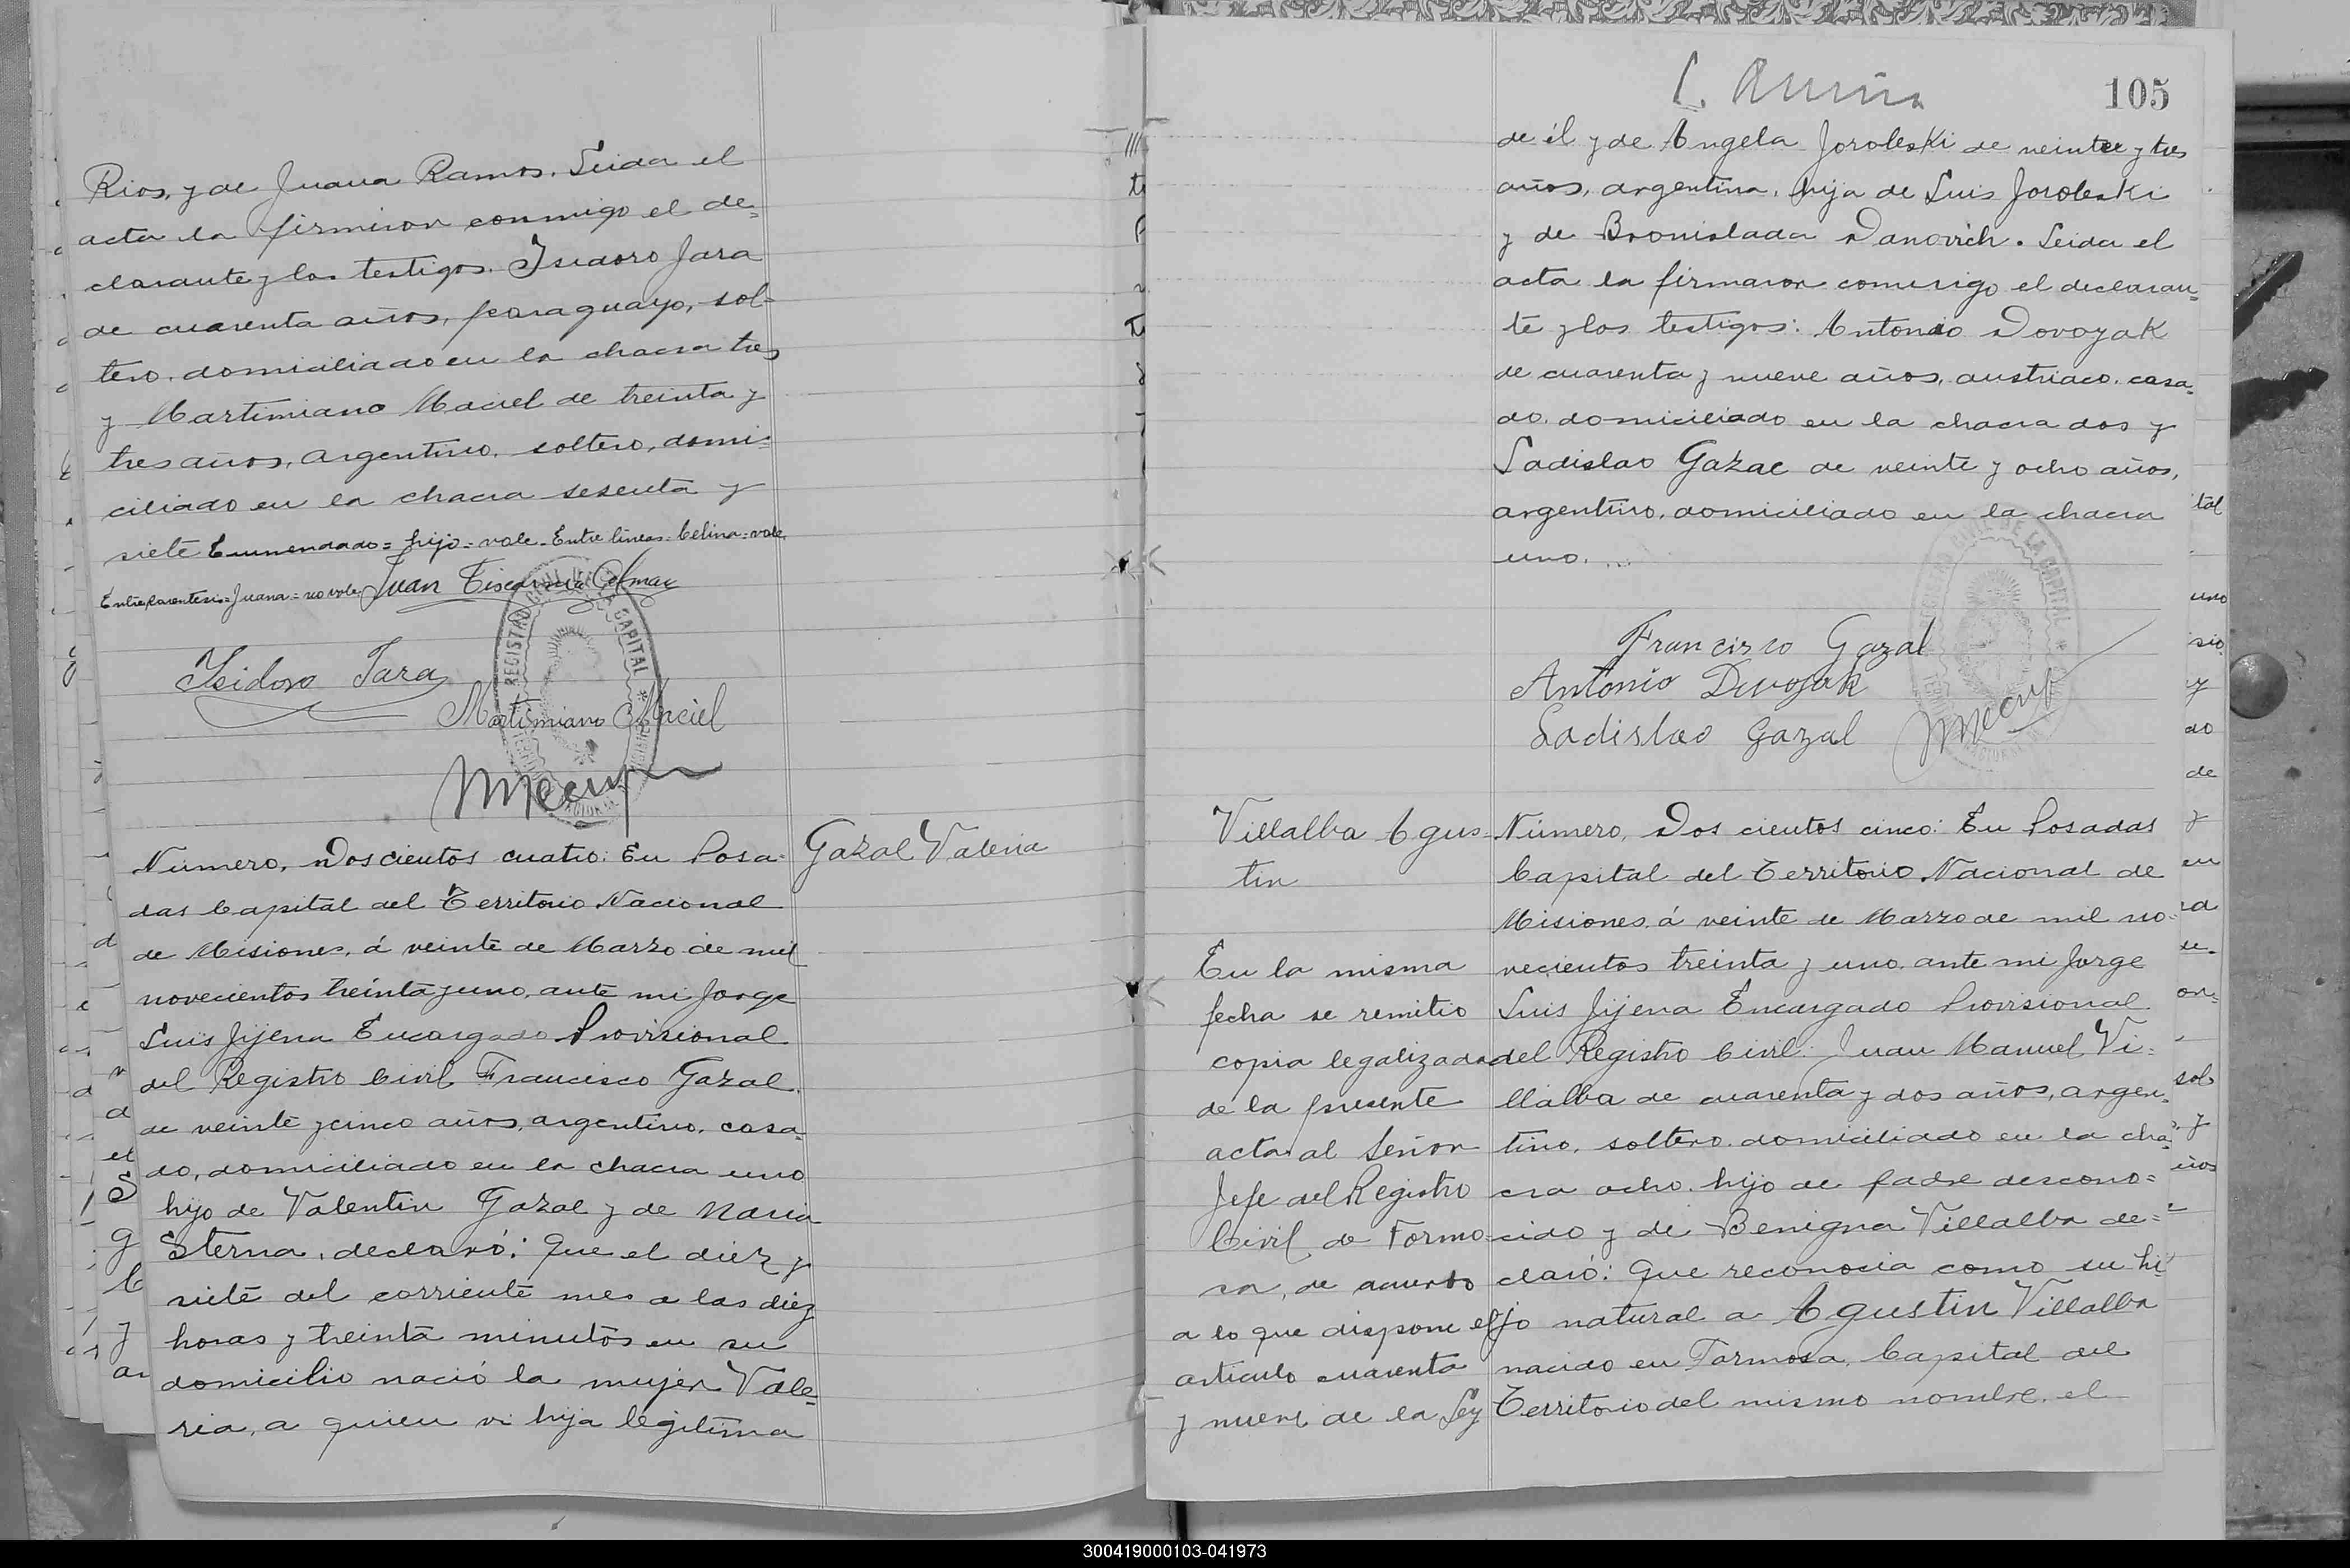 Rios, y de Juana Ramos. Leida el
acta la firmaron conmigo el de=
clarante y los testigos. Isidoro Jara
de cuarenta años, paraguayo, sol-
tero, domiciliado en la chacra tres
y Martimiano Maciel de treinta y
tres años, argentino, soltero, domi=
ciliado en la chacra sesenta y
siete Enmendado= hijo= vale. Entre lineas= Celina= vale.
Entre parentesis= Juana= no vale. Juan
Isidoro Jara
Martimiano Maciel
REGISTRO CIVIL DE LA CAPITAL
Número, Doscientos cuatro: En Posa-
das Capital del Territorio Nacional
de Misiones, á veinte de Marzo de mil
novecientos treinta y uno, ante mi Jorge
Luis Jijena Encargado Provisional
del Registro Civil, Francisco Gazal
de veinte y cinco años, argentino, casa-
do, domiciliado en la chacra uno
hijo de Valentin Gazal y de Maria
Sterna, declaró: Que el diez y
siete del corriente mes a las diez
horas y treinta minutos en su
domicilio nació la mujer Vale=
ria, a quien vi hija legitima
Gazal Valeria
105
de él y de Angela Joroleski de veinte y tres
años, argentina, hija de Luis Joroleski
y de Bronislada Danovich. Leida el
acta la firmaron conmigo el declaran=
te y los testigos: Antonio Dovoyak
de cuarenta y nueve años, austriaco, casa=
do, domiciliado en la chacra dos y
Ladislao Gazac de veinte y ocho años,
argentino, domiciliado en la chacra
uno.
Francisco Gazal
Antonio Dvojak
Ladislao Gazal
REGISTRO CIVIL DE LA CAPITAL
Villalba Agus-
tin
En la misma
fecha se remitio
copia legalizada
de la presente
acta al Señor
Jefe del Registro
Civil de Formo-
sa, de acuerdo
a lo que dispone el
articulo cuarenta
y nueve de la Ley
Número, Dos cientos cinco: En Posadas
Capital del Territorio Nacional de
Misiones, á veinte de Marzo de mil no-
vecientos treinta y uno, ante mi Jorge
Luis Jijena Encargado Provisional
del Registro Civil: Juan Manuel Vi=
llalba de cuarenta y dos años, argen=
tino, soltero, domiciliado en la cha
cra ocho, hijo de padre descono=
cido y de Benigna Villalba de=
claró: Que reconocia como su hi
jo natural a Agustin Villalba
nacido en Formosa, Capital del
Territorio del mismo nombre, el
300419000103-041973